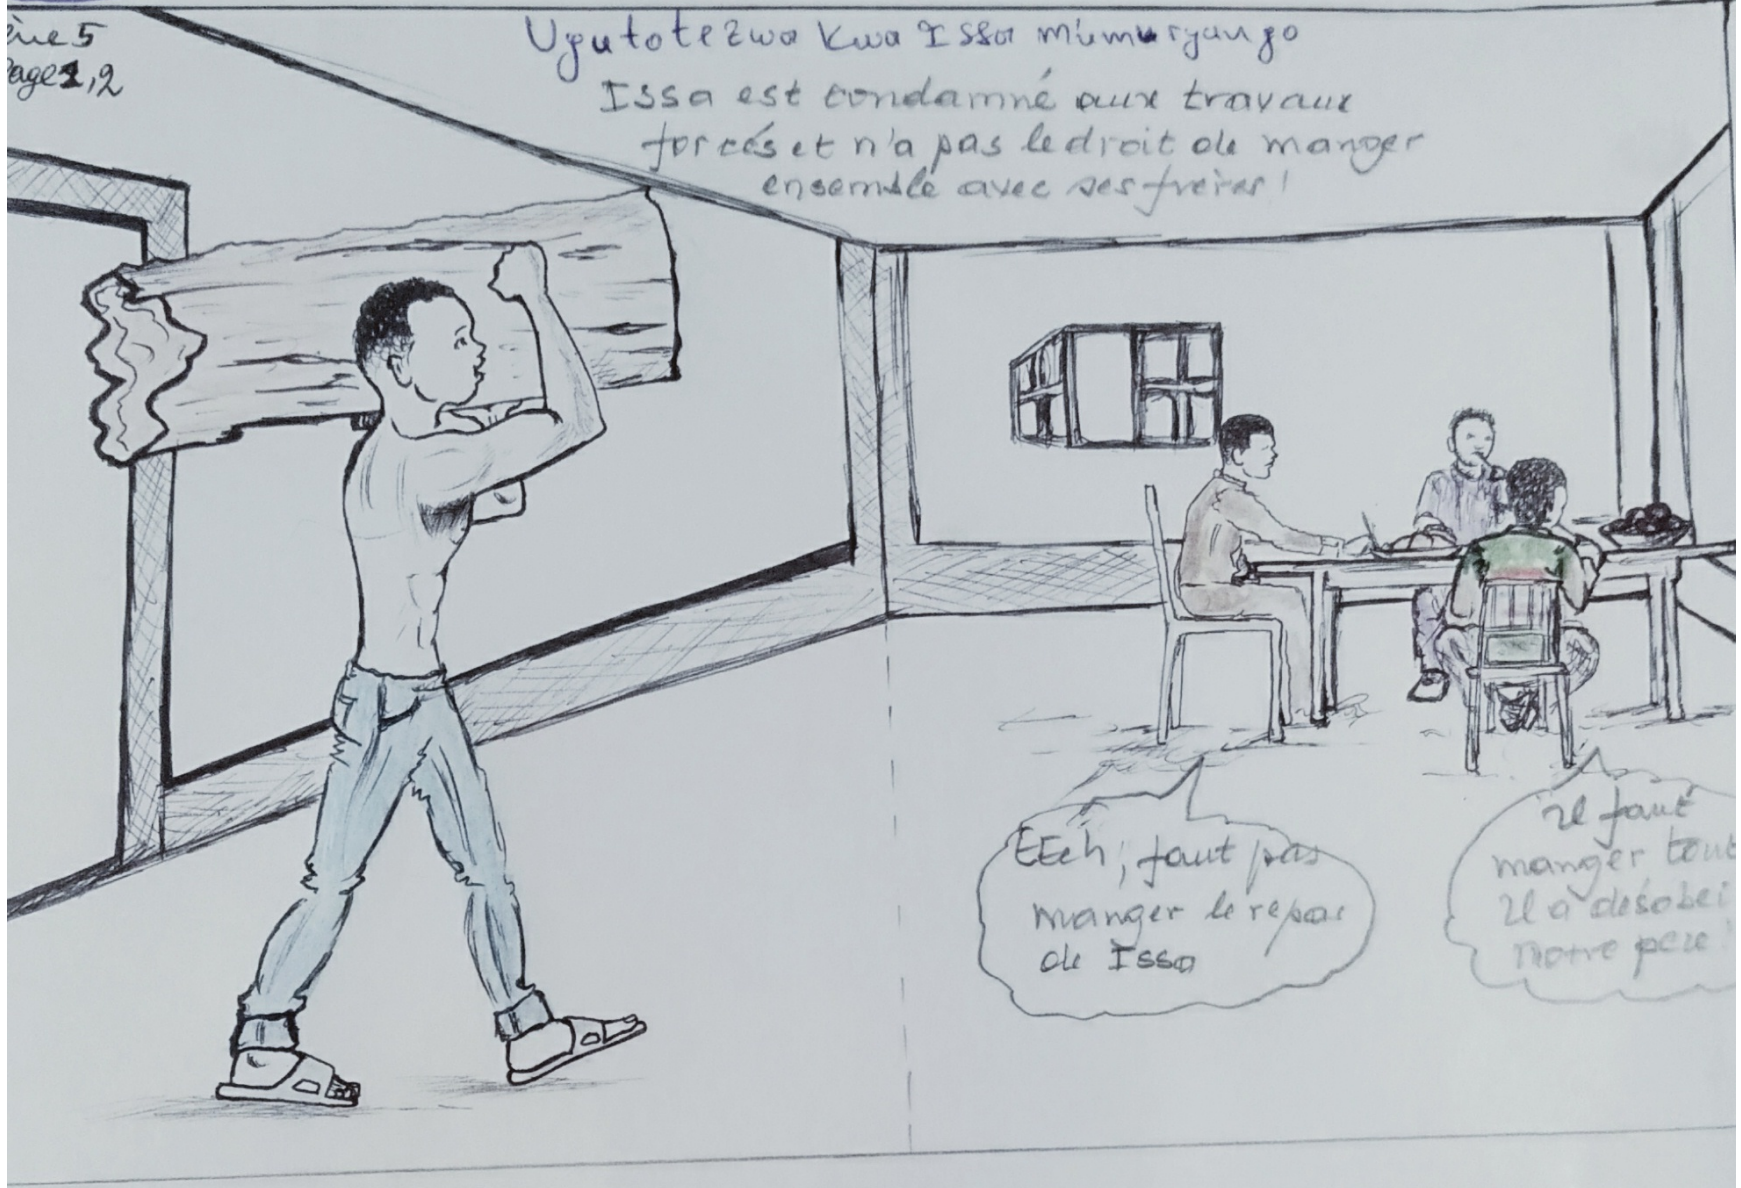 ène 5
Page 1,2
Ugutotezwa kwa Issa m'umuryango
Issa est condamné aux travaux
forcés et n'a pas le droit de manger
ensemble avec ses freres!
EEch, faut pas
manger le repas
de Issa
Il faut
manger tout
Il a désobei
notre pere!